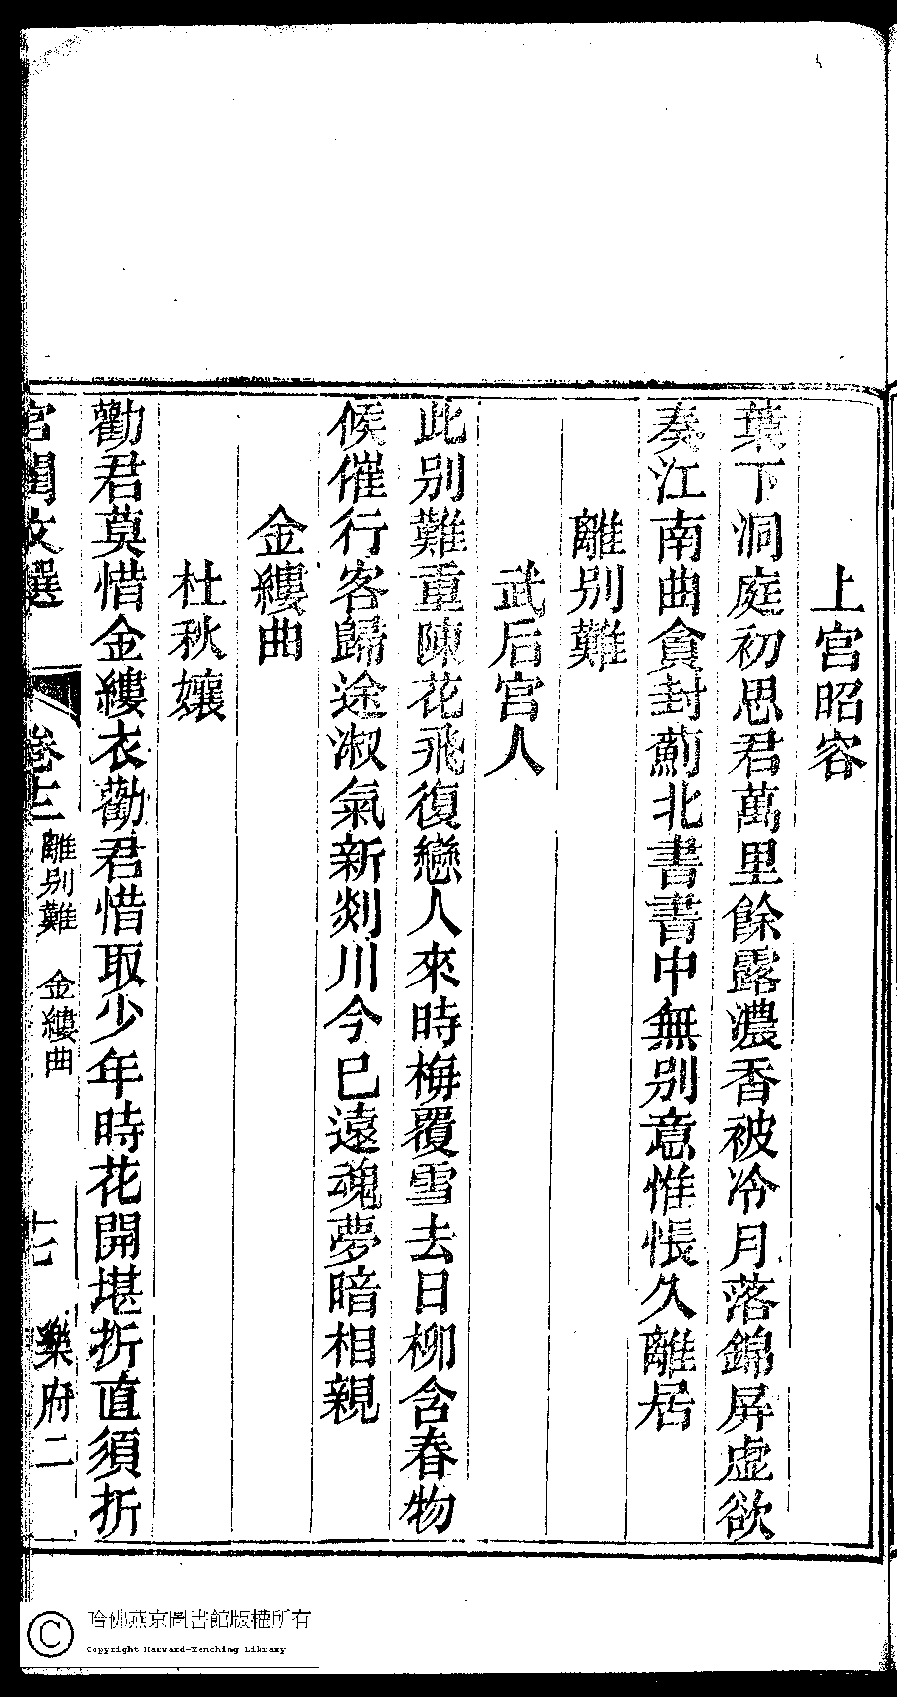 上官昭容
葉下洞庭初思君萬里餘露濃香被冷月落錦屏虛欲
奏江南曲貪封薊北書書中無別意惟悵久離居
離別難
武后宮人
此別難重陳花飛復戀人來時梅覆雪去日柳含春物
候催行客歸途淑氣新剡川今巳遠魂夢暗相親
金縷曲
杜秋孃
勸君莫惜金縷衣勸君惜取少年時花開堪折直須折
宮閨文選 卷十二 離別難 金縷曲 十七 樂府二
哈佛燕京圖書館版權所有
Copyright Harvard-Yenching Library